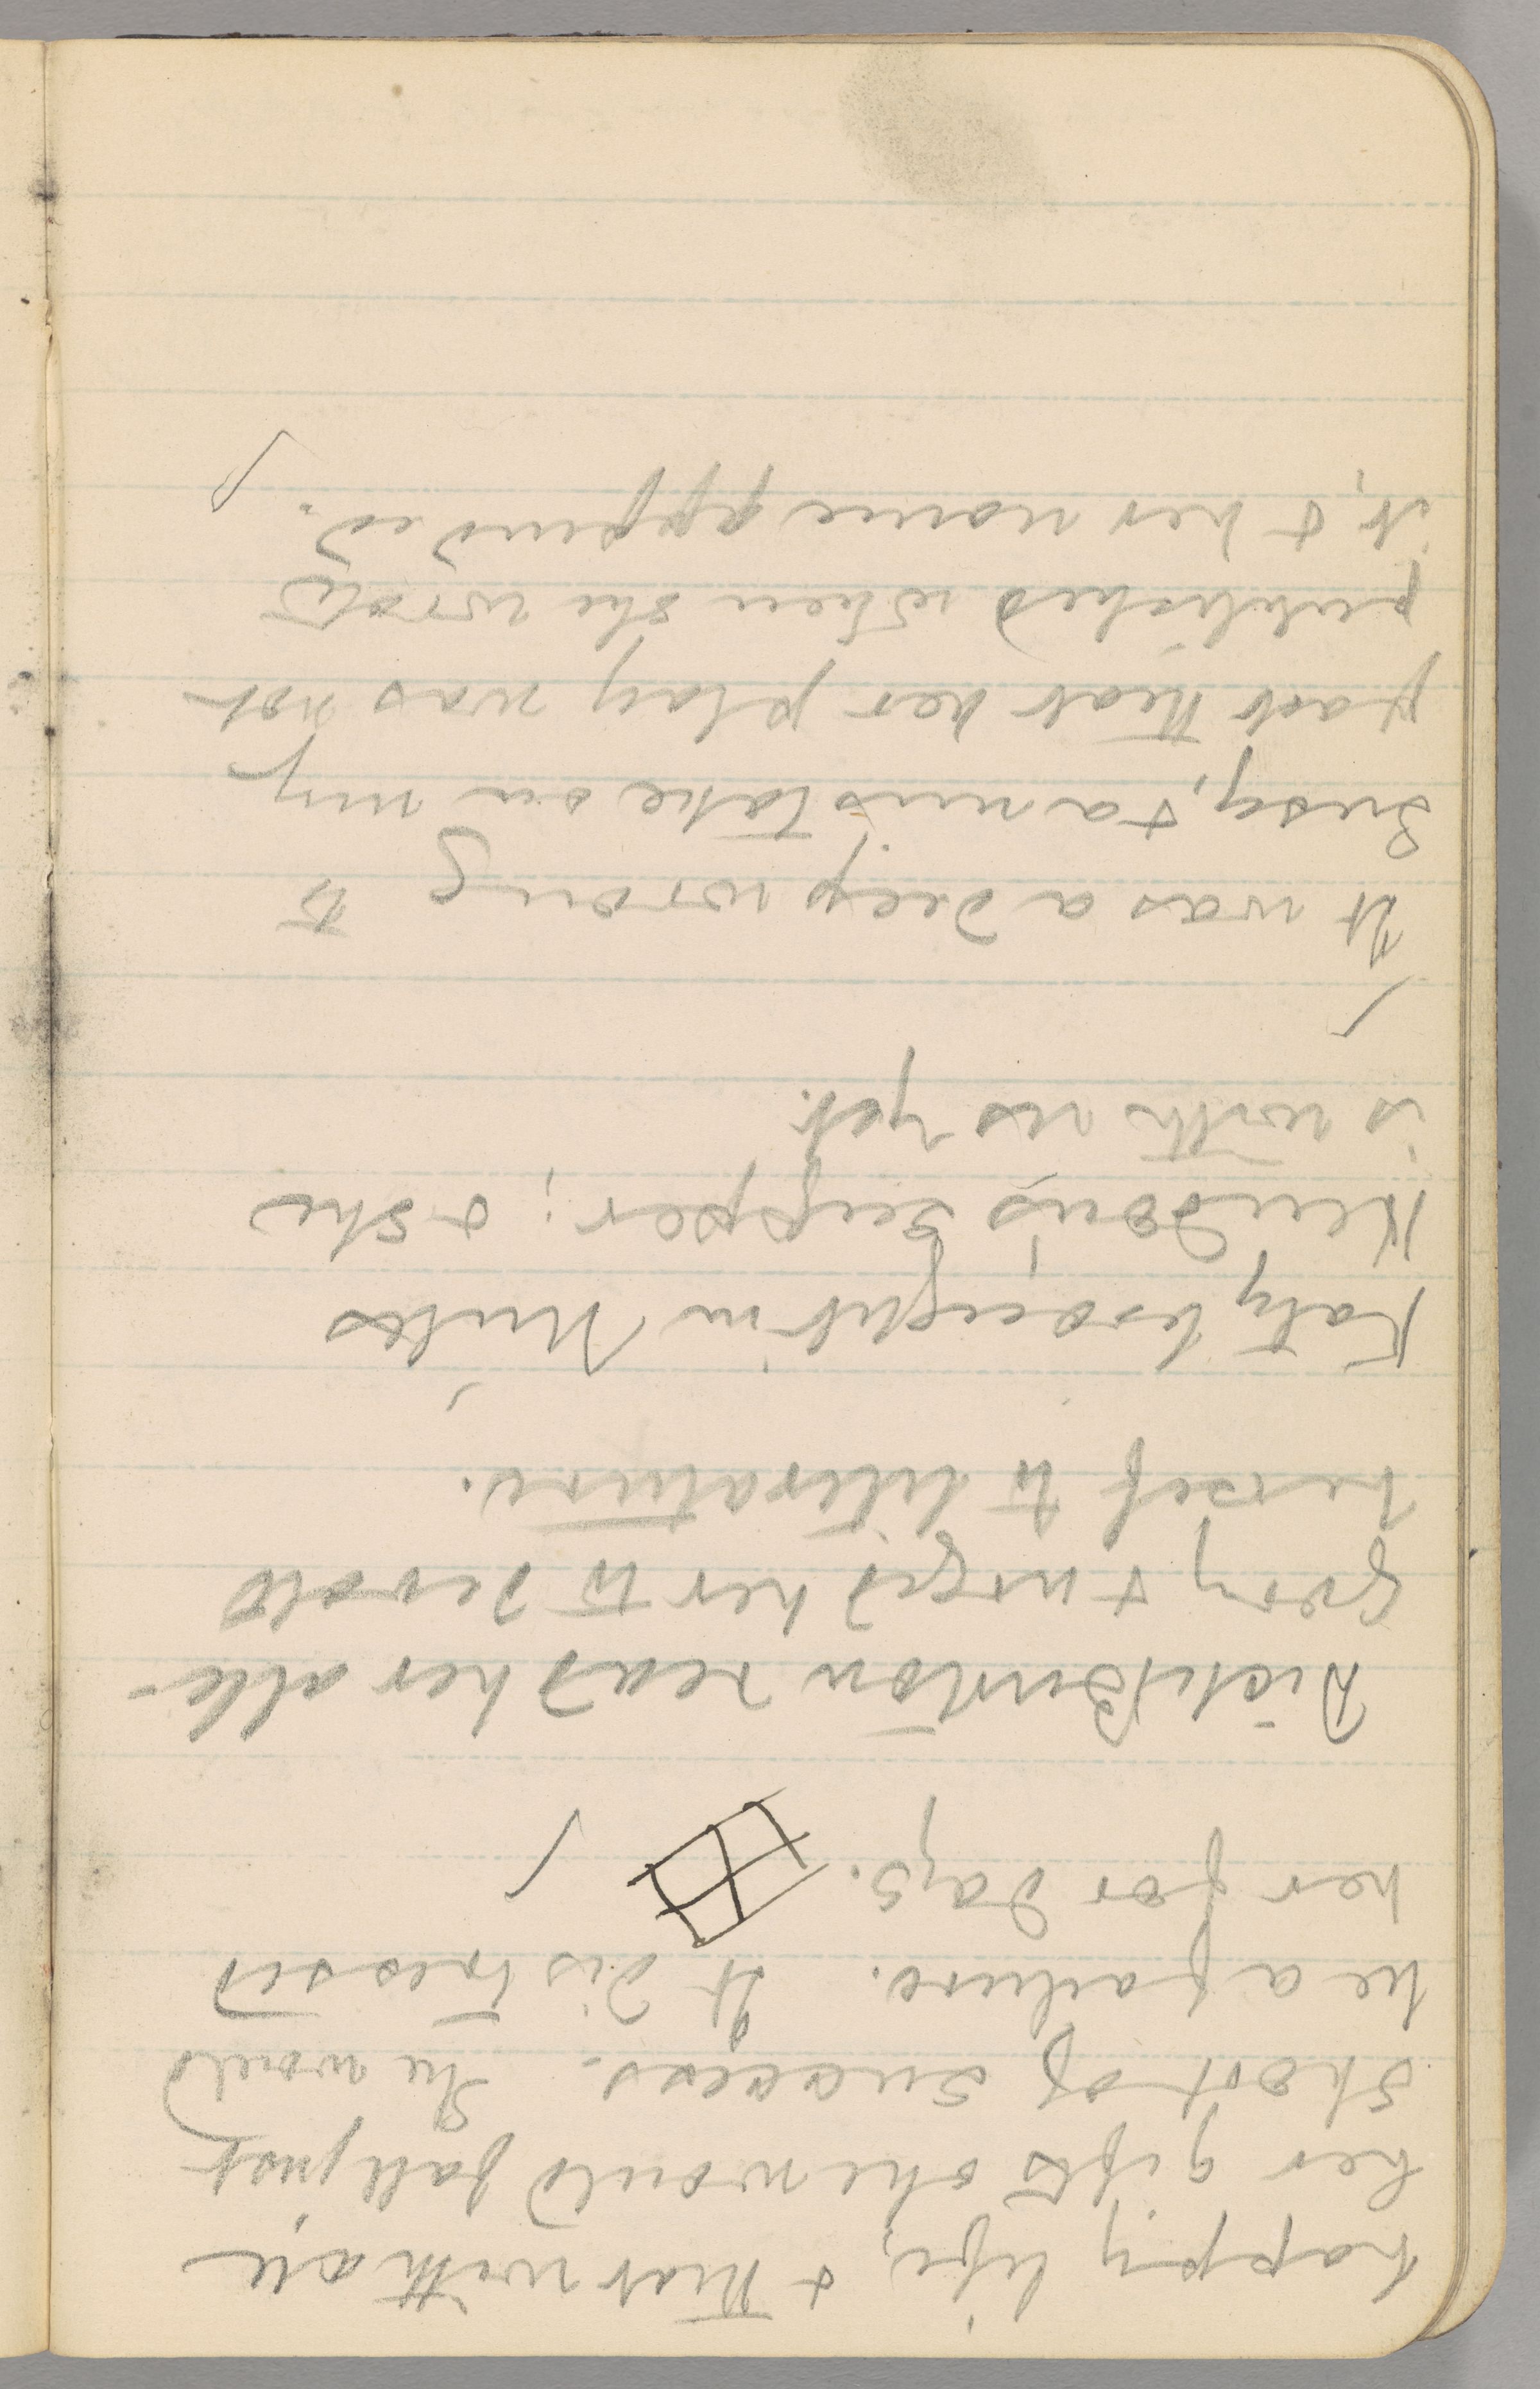 happy life, & that with all
her gifts she would fall just
short of success. She would
be a failure. It distressed
her for days.
Dick Burton read her alle-
gory & urged her to devote
herself to literature.
Katy brought in Miles
Hendon's supper; & she
is with us yet.
It was a deep wrong to
Susy, & a mistake on my
part that her play was not
published when she wrote
it, & her name appended.